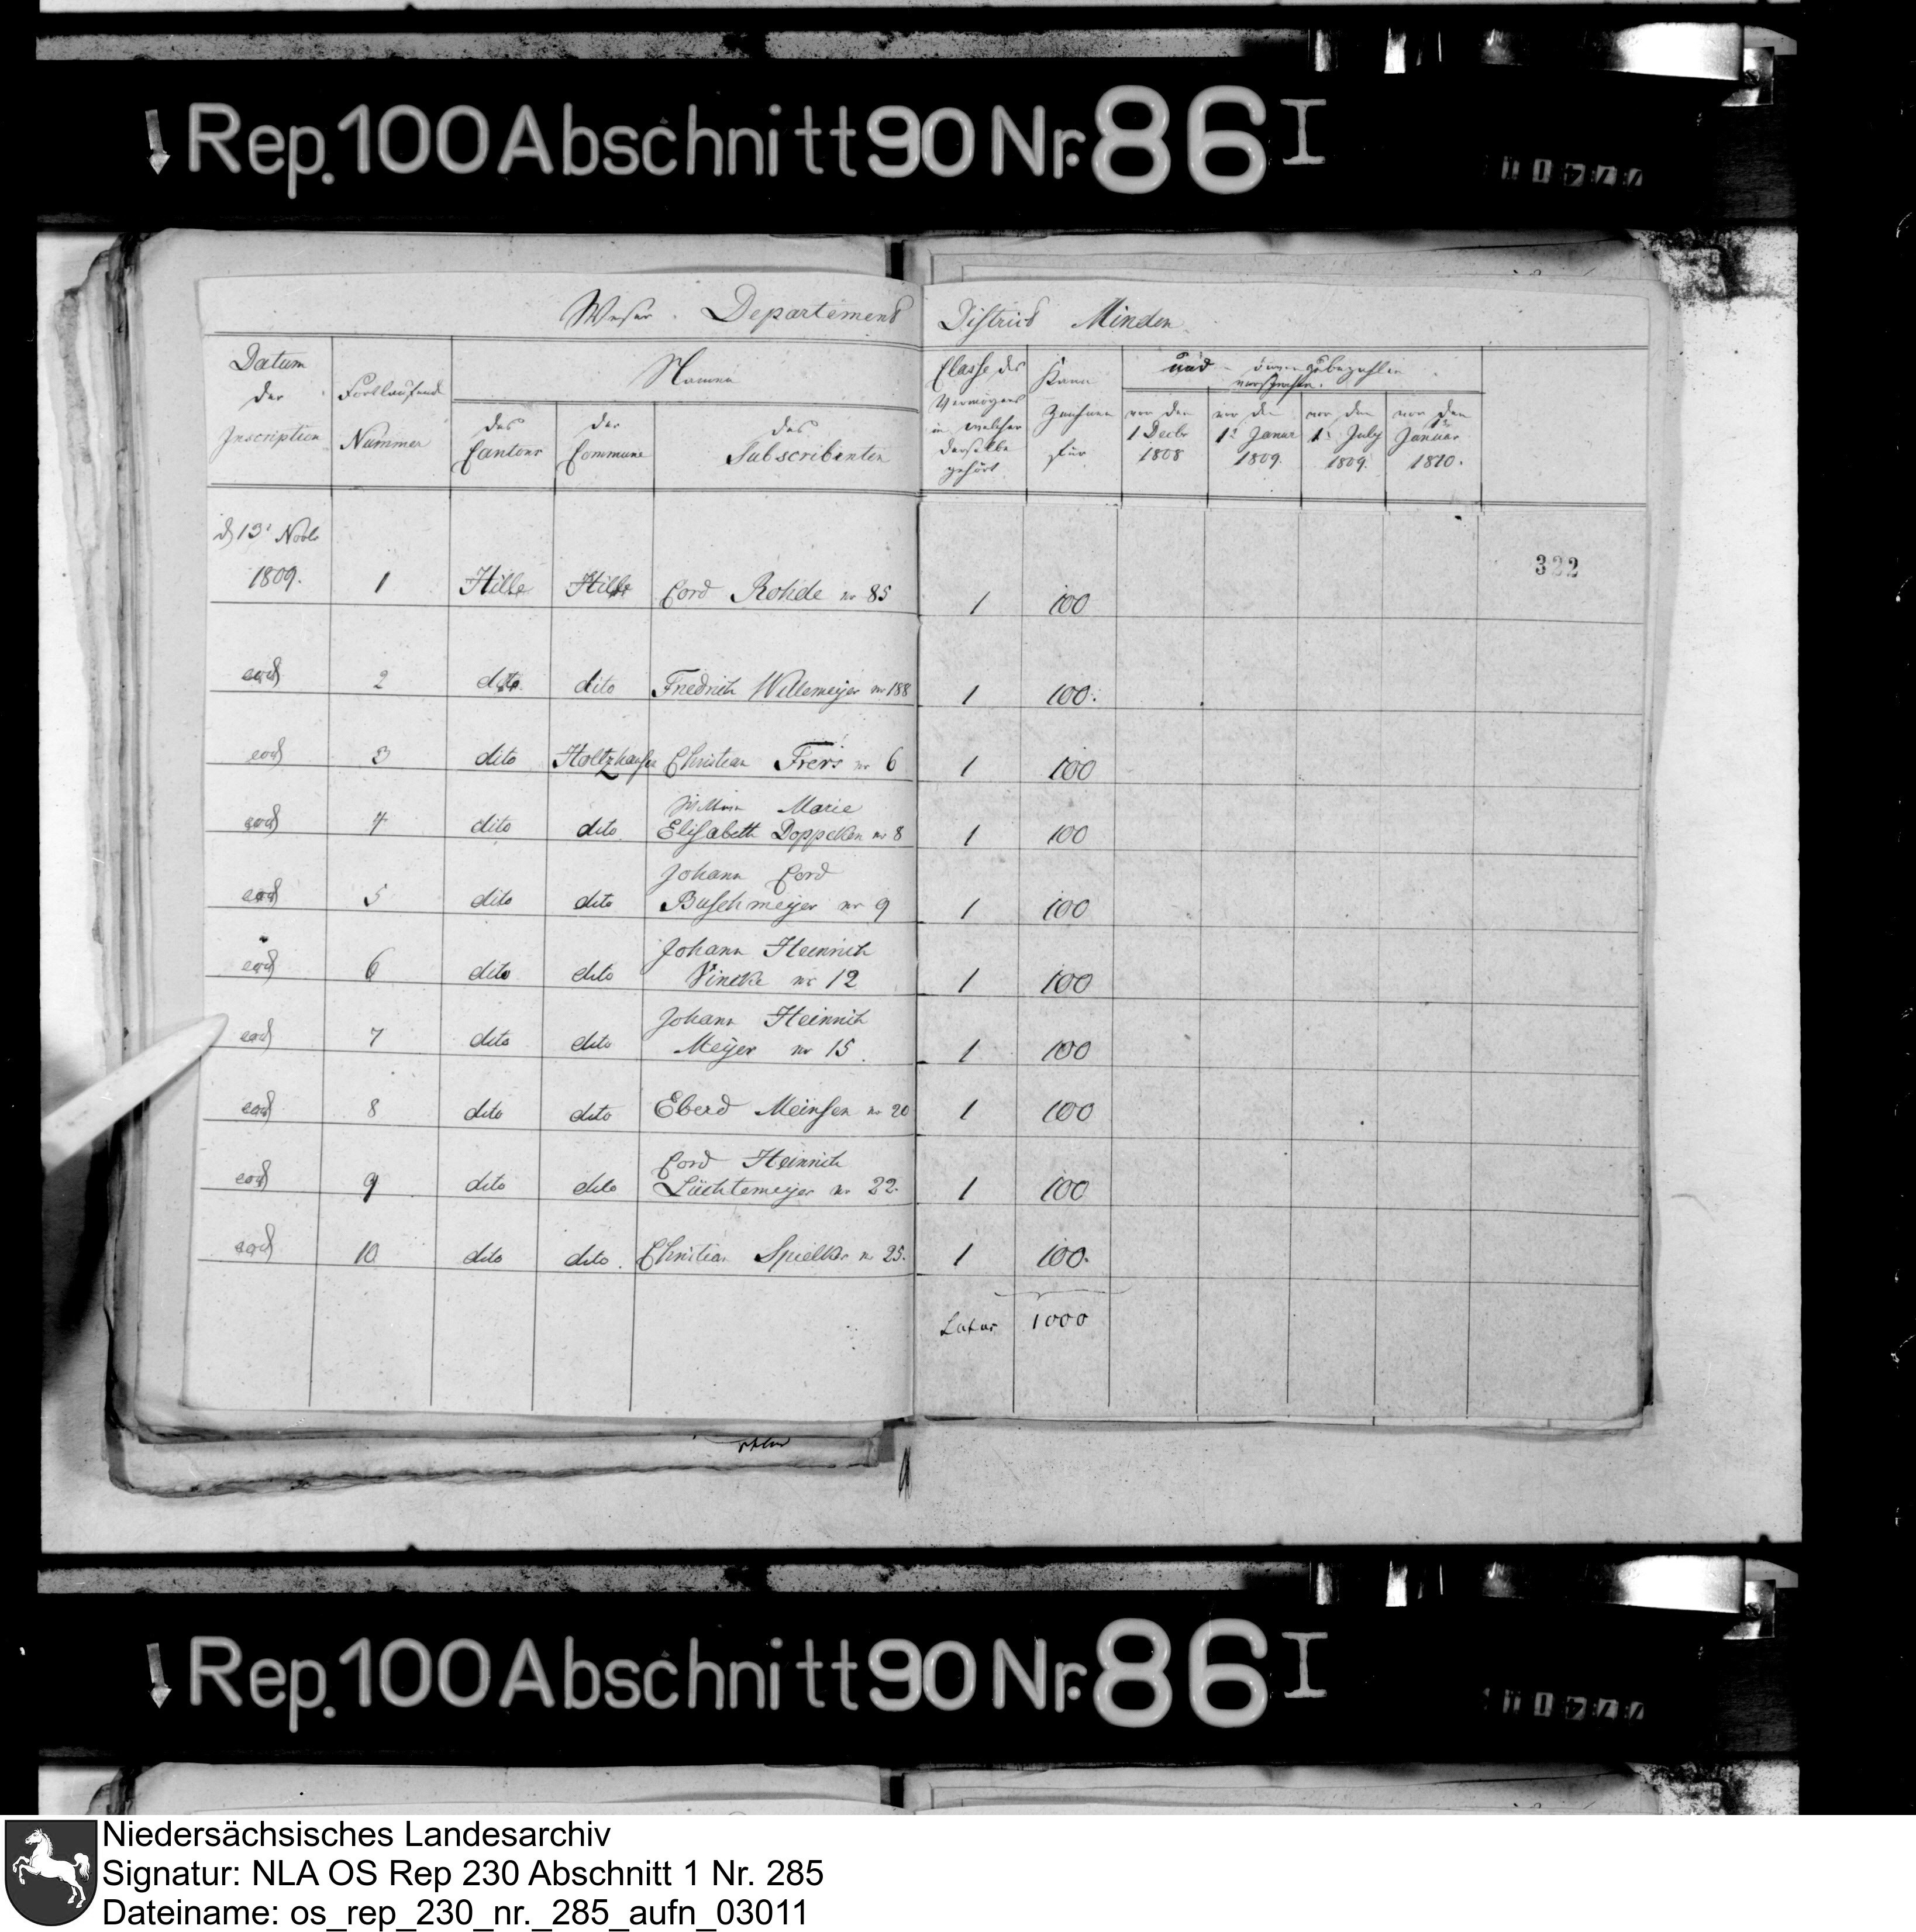 Rep. 100 Abschnitt 90 Nr. 86 I
Weser Departement District Minden
Datum der Inscription
Fortlaufende Nummer
Namen
des Cantons
der Commune
des Subscribenten
Classe des Vermögens in welcher derselbe gehört
Kann Zeichnen für
vor den 1 Decbr 1808
vor den 1n Januar 1809.
vor den 1n July 1809.
vor den 1n Januar 1810.
322
d 13n Novbr 1809. 1 Hille Hille Cord Rohde nr 85 1 100
eod 2 dito dito Friedrich Willemeijer nr 188 1 100.
eod 3 dito Holtzhausen Christian Frers nr 6 1 100
eod 4 dito dito Wittwe Marie
Elisabeth Doppelken nr 8 1 100
eod 5 dito dito Johann Cord
Buschmeijer nr 9 1 100
eod 6 dito dito Johann Heinrich
Vincke nr 12 1 100
eod 7 dito dito Johann Heinrich
Meijer nr 15. 1 100
eod 8 dito dito Eberd Meinsen nr 20 1 100
eod 9 dito dito Cord Heinrich
Lüchtemeijer nr 22. 1 100
eod 10 dito dito. Christian Spielker nr 25. 1 100.
Latus 1000
Rep. 100 Abschnitt 90 Nr. 86 I
Niedersächsisches Landesarchiv
Signatur: NLA OS Rep 230 Abschnitt 1 Nr. 285
Dateiname: os_rep_230_nr._285_aufn_03011